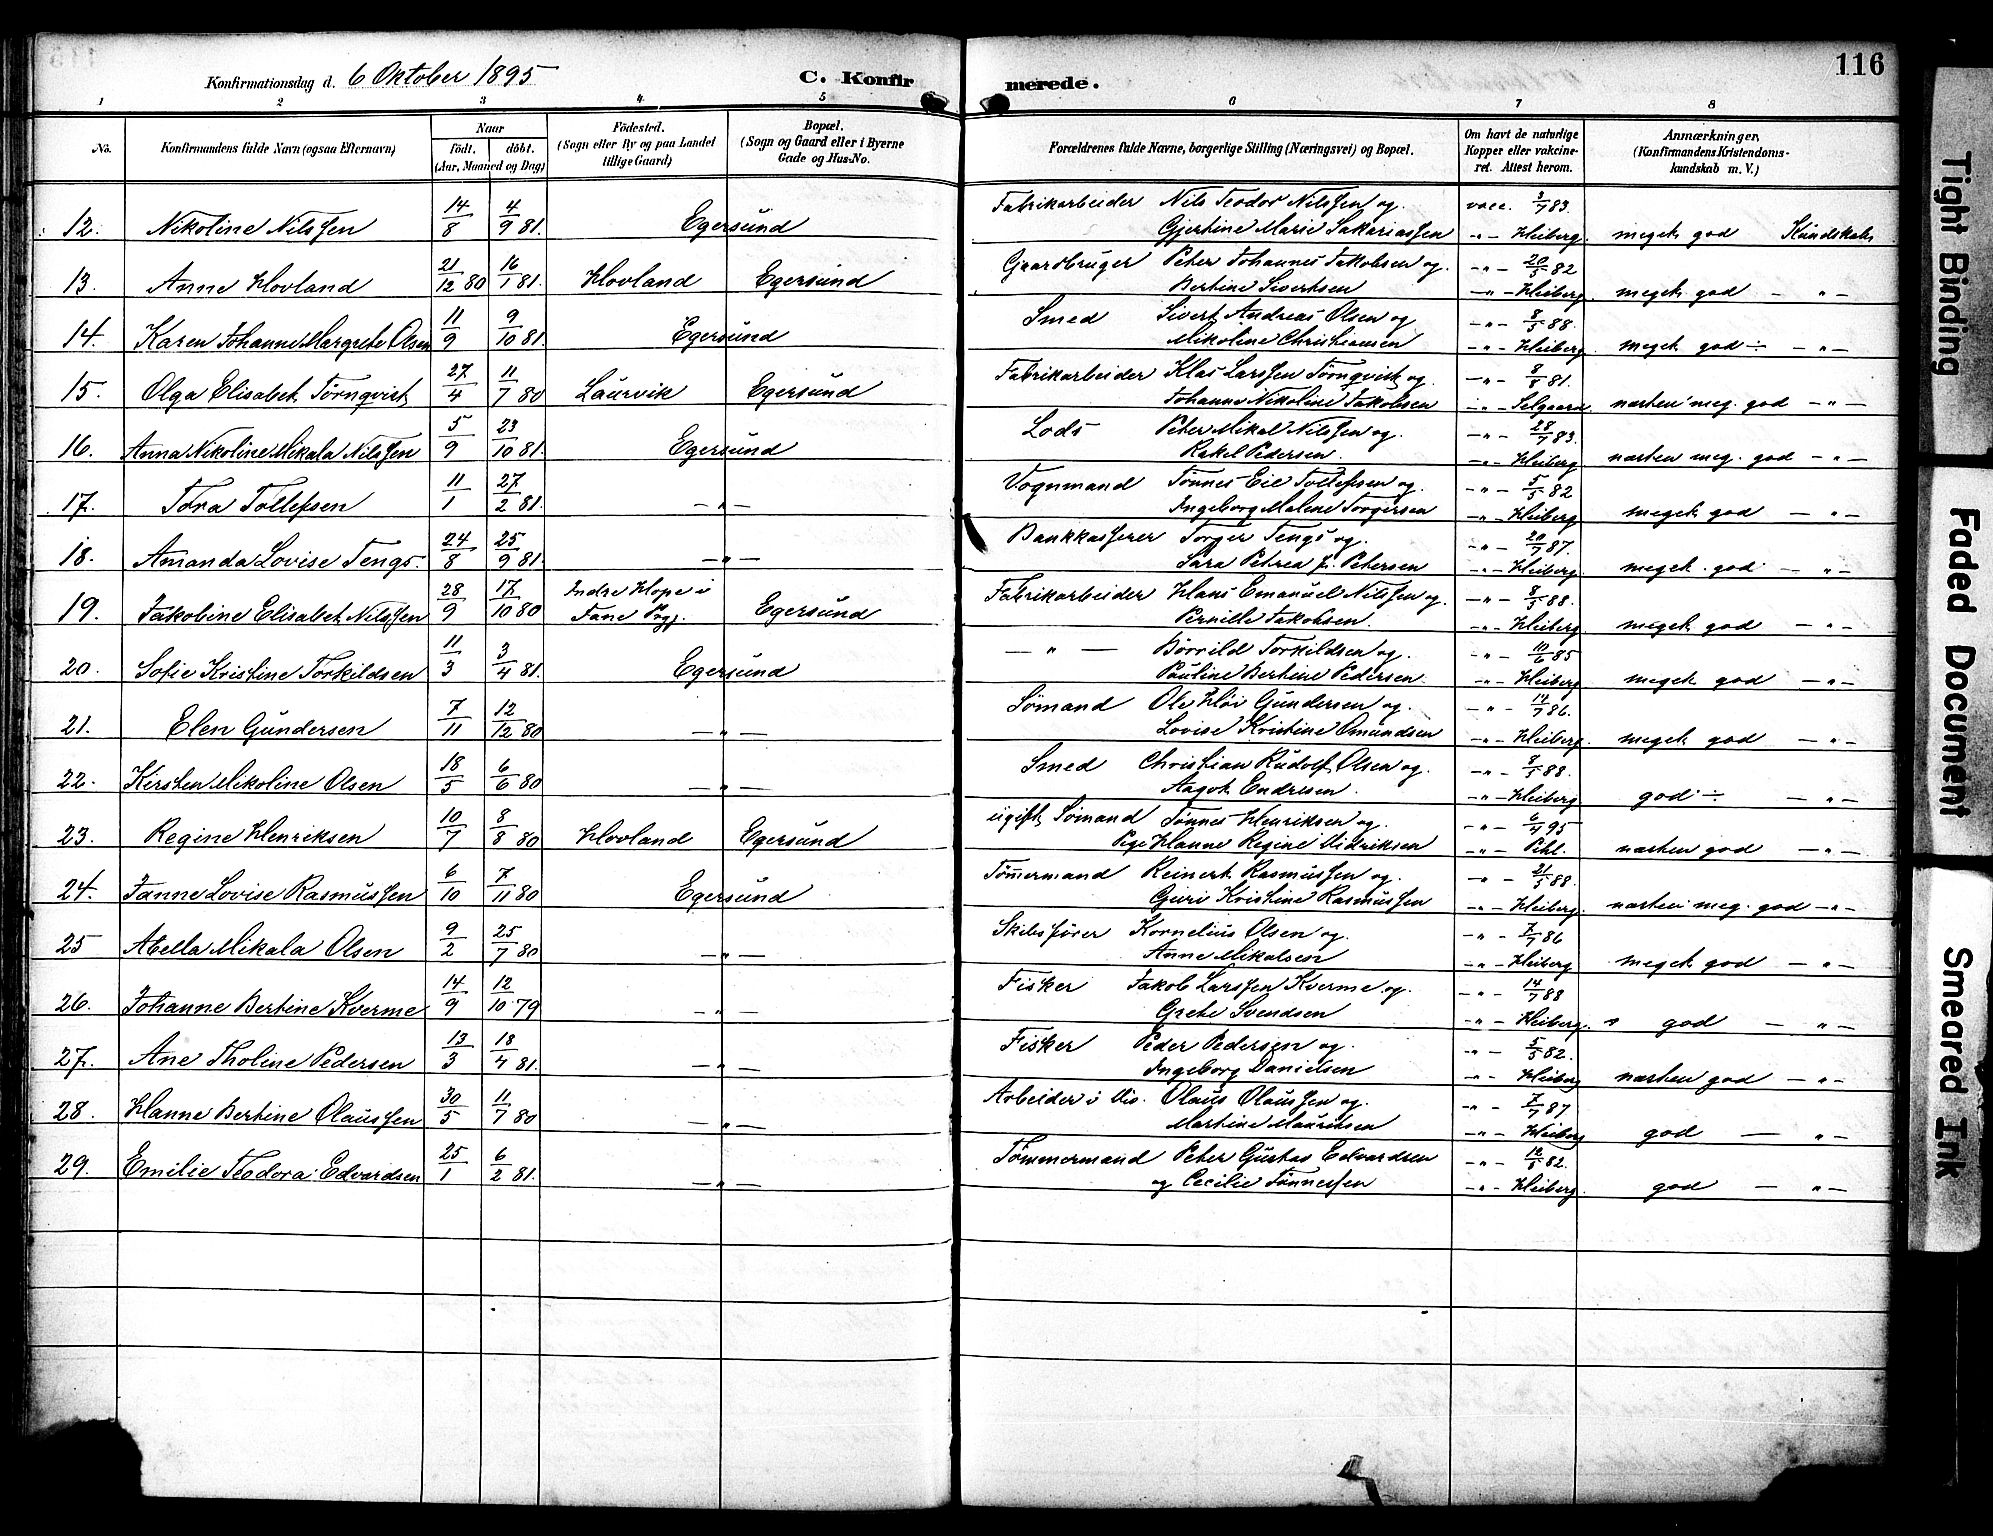 116
Konfirmationsdag d. 6 Oktober 1895
C. Konfirmerede.
1 2 3 4 5 6 7 8
No. Konfirmandens fulde Navn (ogsaa Efternavn) Naar født. døbt. (Aar, Maaned og Dag) Fødested. (Sogn eller By og paa Landet tillige Gaard) Bopæl. (Sogn og Gaard eller i Byerne Gade og Hus-No. Forældrenes fulde Navne, borgerlige Stilling (Næringsvei) og Bopæl. Om havt de naturlige Kopper eller vakcineret. Attest herom. Anmærkninger, (Konfirmandens Kristendomskundskab m. V.)
12. Nikoline Nilssen 14/8 4/9 81. Egersund Fabrikarbeider Nils Teodor Nilssen og vacc. 3/7 83.
Gjertine Marie Sakariassen -"- Heiberg. meget god Kundskab
13. Anne Hovland 21/12 80 16/1 81. Hovland Egersund Gaardbruger Peter Johannes Jakobsen og -"- 20/5 82
Bertine Sivertsen -"- Heiberg meget god -"-
14. Karen Johanne Margrete Olsen 11/9 9/10 81. Egersund Smed Sivert Andreas Olsen og -"- 8/5 88.
Mikoline Christiansen -"- Heiberg meget god ÷ -"-
15. Olga Elisabet Törnqvist 27/4 11/7 80 Laurvik Egersund Fabrikarbeider Klas Larssen Törnqvist og -"- 8/8 81.
Johanne Nikoline Jakobsen -"- Selgaard næsten meg. god -"-
16. Anna Nikoline Mikala Nilssen 5/9 23/10 81. Egersund Lods Peter Mikal Nilssen og -"- 28/7 83.
Rakel Pedersen. -"- Heiberg næsten meg. god -"-
17. Tora Tollefsen 11/1 27/2 81. -"- Vognmand Tönnes Eie Tollefsen og -"- 5/5 82
Ingeborg Malene Torgersen -"- Heiberg meget god -"-
18. Amanda Lovise Tengs. 24/8 25/9 81. -"- Bankkasserer Torger Tengs og -"- 20/7 87.
Sara Petrea f. Petersen -"- Heiberg meget god -"-
19. Jakobine Elisabet Nilssen 28/9 17/10 80 Indre Hope i Fane Pgj. Egersund Fabrikarbeider Hans Emanuel Nilssen og -"- 8/5 88.
Pernille Jakobsen. -"- Heiberg. meget god -"-
20. Sofie Kristine Torkildsen 11/3 3/4 81. Egersund -"- Börrild Torkildsen og -"- 10/6 85
Pauline Bertine Pedersen. -"- Heiberg meget god -"-
21. Elen Gundersen 7/11 12/12 80 -"- Sömand Ole Höi Gundersen og -"- 14/7 86.
Lovise Kristine Omundsen -"- Heiberg. meget god -"-
22. Kirsten Mikoline Olsen 18/5 6/6 80 -"- Smed Christian Rudolf Olsen og -"- 8/5 88.
Aagot Endresen. -"- Heiberg god ÷ -"-
23. Regine Henriksen 10/7 8/8 80 Hovland Egersund ugift Sömand Tönnes Henriksen og -"- 6/4 95
Pige Hanne Regine Didriksen -"- Pehl. næsten god -"-
24. Janne Lovise Rasmussen 6/10 7/11 80 Egersund Tömmermand Reinert Rasmussen og -"- 21/5 88.
Guri Kristine Rasmussen -"- Heiberg. næsten meg. god -"-
25 Abella Mikala Olsen 9/2 25/7 80 -"- Skibsfører Kornelius Olsen og -"- 7/7 86
Anne Mikalsen -"- Heiberg meget god -"-
26. Johanne Bertine Kverme 14/9 12/10 79 -"- Fisker Jakob Larssen Kverme og -"- 14/7 88
Grete Svendsen -"- Heiberg. god -"-
27. Ane Tholine Pedersen 13/3 18/4 81. -"- Fisker Peder Pedersen og -"- 5/5 82.
Ingeborg Danielsen -"- Heiberg næsten god -"-
28. Hanne Bertine Olaussen 30/5 11/7 80 -"- Arbeider i Div. Olaus Olaussen og -"- 7/7 87
Martine Mauritsen -"- Heiberg god -"-
29. Emilie Teodora Edvardsen 25/1 6/2 81. -"- Tömmermand Peter Gustav Edvardsen -"- 82.
og Cecilie Tönnessen -"- Heiberg. god -"-
Tight Binding
Faded Document
Smeared Ink